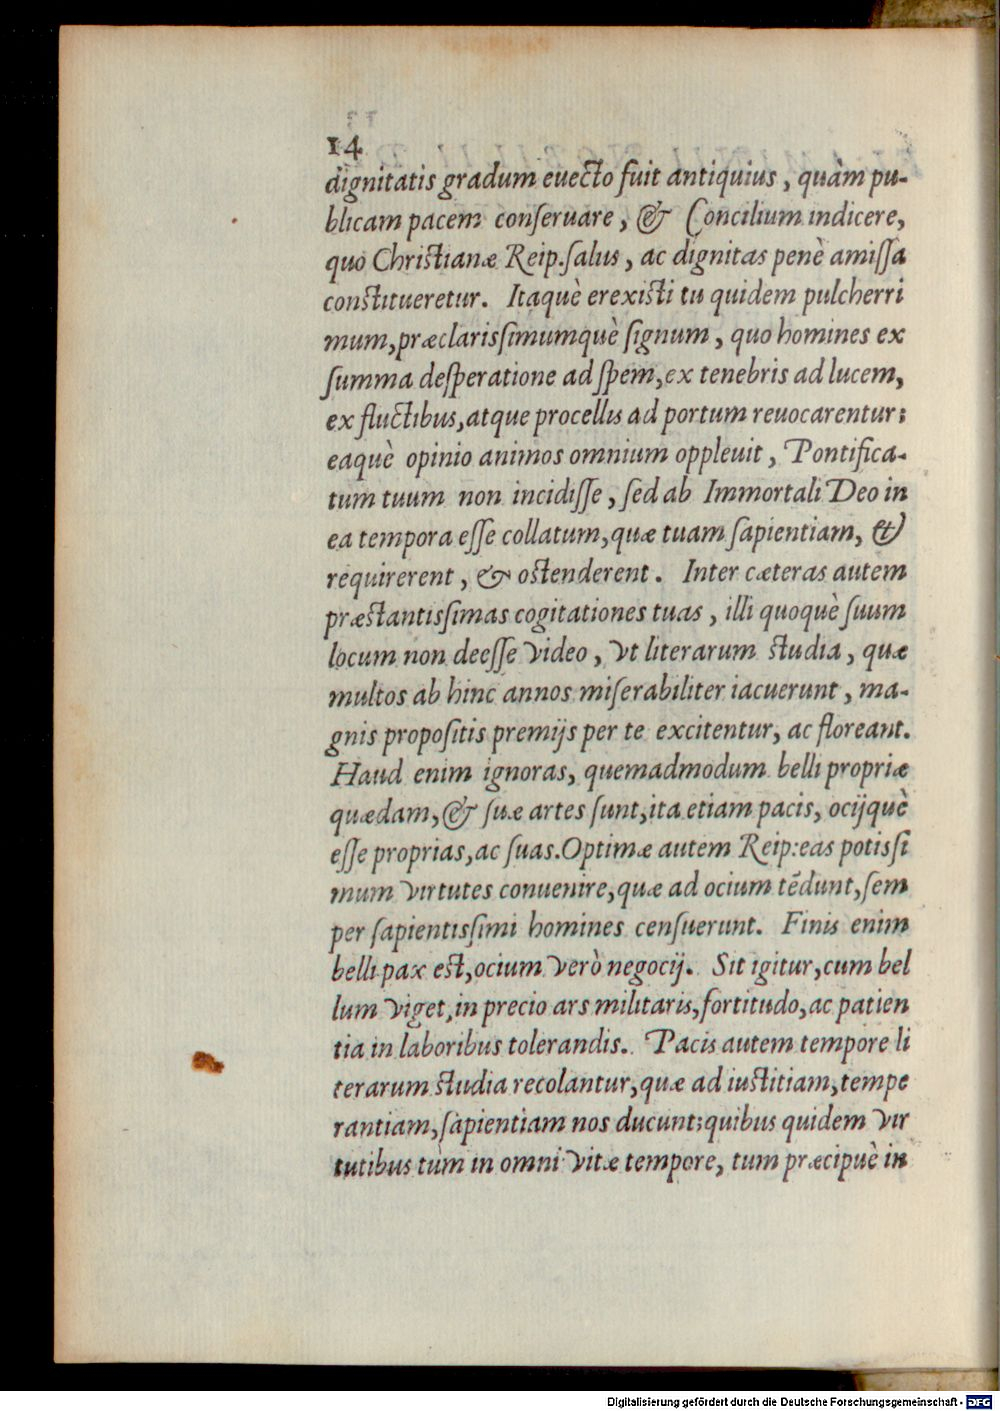 14
dignitatis gradum euecto fuit antiquius, quàm pu-
blicam pacem conſeruare, & Concilium indicere,
quo Christianæ Reip. ſalus, ac dignitas penè amiſſa
constitueretur. Itaquè erexisti tu quidem pulcherri
mum, præclarisſimumquè ſignum, quo homines ex
ſumma deſperatione ad ſpem, ex tenebris ad lucem,
ex fluctibus, atque procellis ad portum reuocarentur:
eaquè opinio animos omnium oppleuit, Pontifica-
tum tuum non incidiſſe, ſed ab Immortali Deo in
ea tempora eſſe collatum, quæ tuam ſapientiam, &
requirerent, & ostenderent. Inter cæteras autem
præstantisſimas cogitationes tuas, illi quoquè ſuum
locum non deeſſe video, vt literarum studia, quæ
multos ab hinc annos miſerabiliter iacuerunt, ma-
gnis propoſitis premijs per te excitentur, ac floreant.
Haud enim ignoras, quemadmodum belli propriæ
quædam, & ſuæ artes ſunt, ita etiam pacis, ocijquè
eſſe proprias, ac ſuas. Optimæ autem Reip: eas potisſi
mum virtutes conuenire, quæ ad ocium tẽdunt, ſem
per ſapientisſimi homines cenſuerunt. Finis enim
belli pax est, ocium verò negocij. Sit igitur, cum bel
lum viget, in precio ars militaris, fortitudo, ac patien
tia in laboribus tolerandis. Pacis autem tempore li
terarum studia recolantur, quæ ad iustitiam, tempe
rantiam, ſapientiam nos ducunt; quibus quidem vir
tutibus tùm in omni vitæ tempore, tum præcipuè in
Digitalisierung gefördert durch die Deutsche Forschungsgemeinschaft - DFG